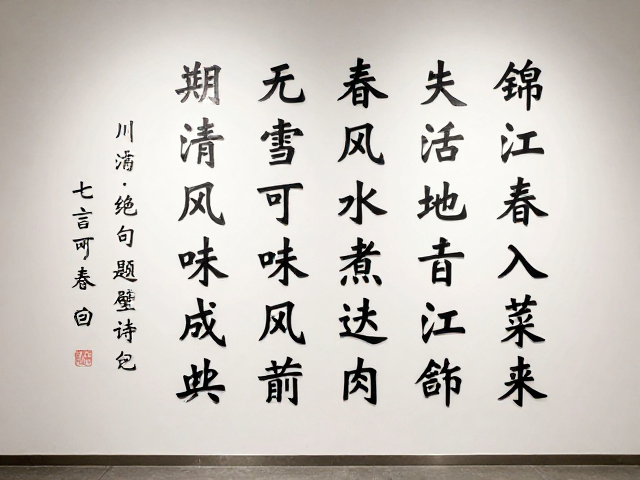 锦江春入菜来
失活地江
春风水煮达肉
无雪可味风前
朔清风味成典
川·绝句题诗
七言可春